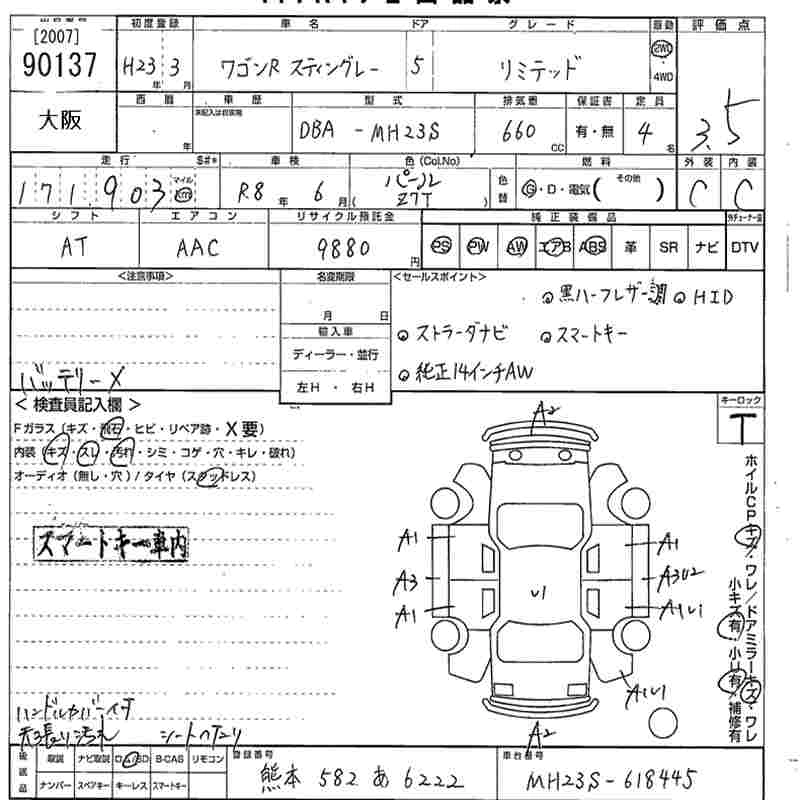 [2007] 初度登録 車名 ドア グレード 駆動 評価点
90137 H23年 3月 ワゴンR スティングレー 5 リミテッド 2WD 4WD
大阪 西暦 車歴 型式 排気量 保証書 定員 3.5
年 未記入は自家用 DBA - MH23S 660 CC 有・無 4名
走行 S#* 車検 色(Col.No) 燃料 外装 内装
171,903 マイル km R8年 6月 (パール Z7T) 色替 G・D・電気( その他 ) C C
シフト エアコン リサイクル預託金 純正装備品
AT AAC 9880円 PS PW AW エアB ABS 革 SR ナビ DTV
<注意事項> 名変期限 <セールスポイント>
月 日 黒ハーフレザー調 HID
輸入車 ストラーダナビ スマートキー
ディーラー・並行 純正14インチAW
バッテリー× 左H・右H
<検査員記入欄> キーロック
Fガラス(キズ・飛石・ヒビ・リペア跡・X要) A2 T
内装(キズ・スレ・汚れ・シミ・コゲ・穴・キレ・破れ)
オーディオ(無し・穴)/タイヤ(スタッドレス)
ホイルCPキズ・ワレ/ドアミラーキズ・ワレ
小キズ有・小U有/補修有
スマートキー車内 A1 A1
A3 U1 A3U2
A1 A1U1
A1U1
ハンドルカバーイタ
天張り汚れ シートヘタリ A2
後返品 取説 ナビ取説 ロム/SD B-CAS リモコン 登録番号 車台番号
ナンバー スペアキー キーレス スマートキー 熊本 582 あ 6222 MH23S-618445